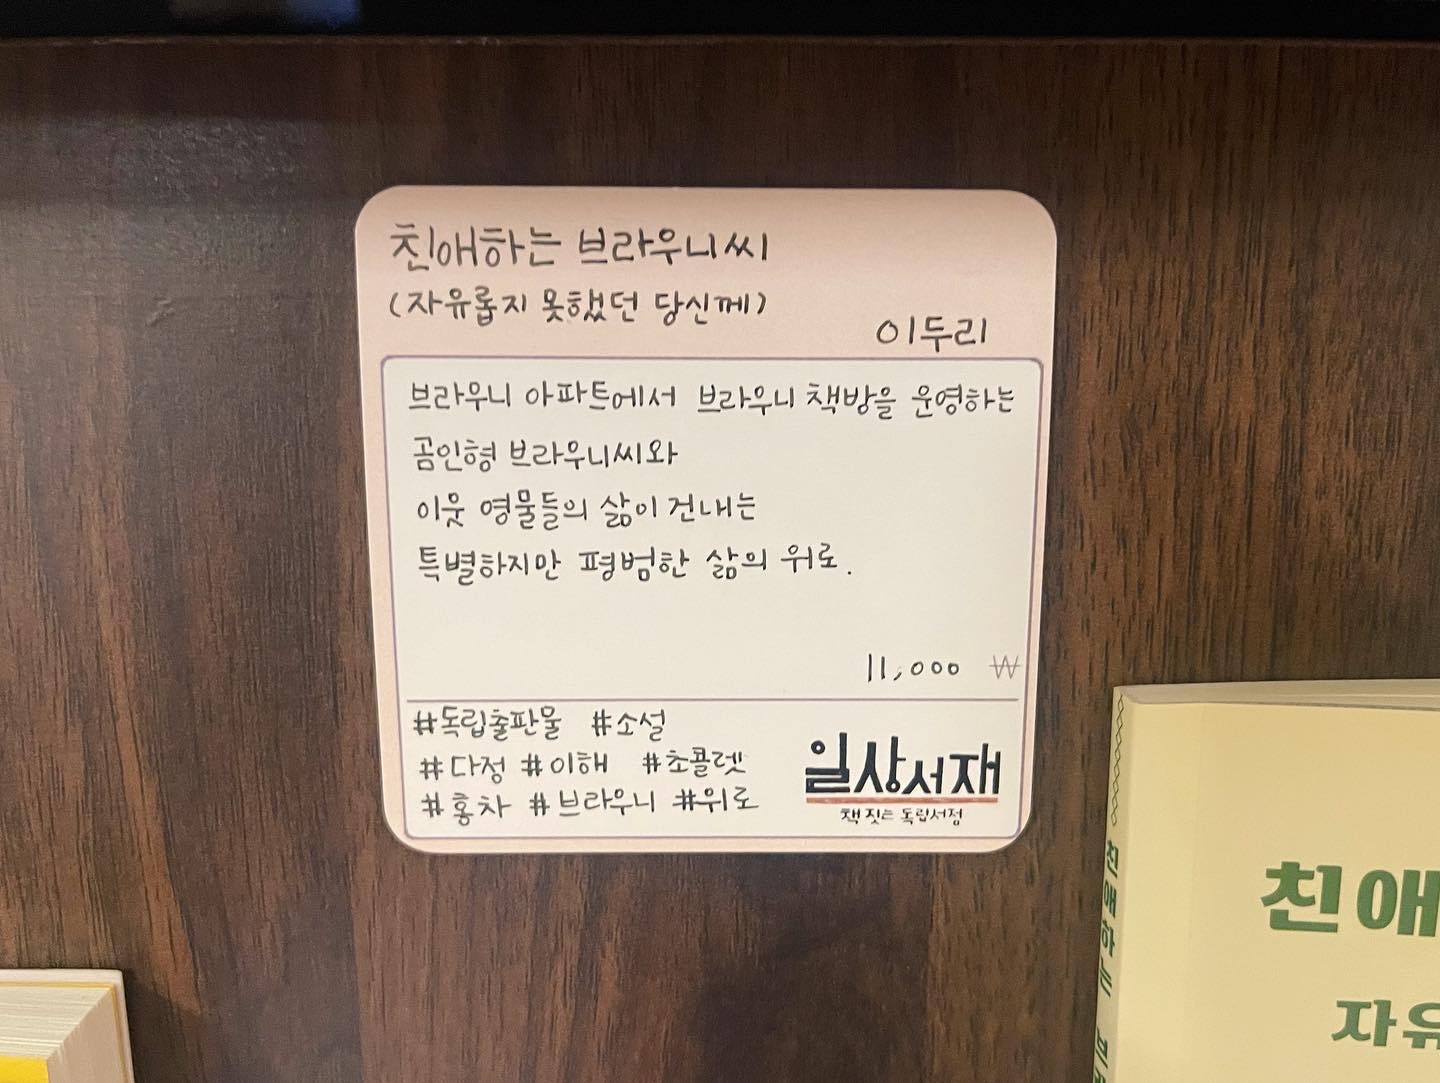 친애하는 브라우니씨
(자유롭지 못했던 당신께)
이두리
브라우니 아파트에서 브라우니 책방을 운영하는
곰인형 브라우니씨와
이웃 영물들의 삶이 건내는
특별하지만 평범한 삶의 위로.
11,000 ₩
#독립출판물 #소설
#다정 #이해 #초콜렛
#홍차 #브라우니 #위로
일상서재
책 짓는 독립서점
친애하는 브라
친애
자유